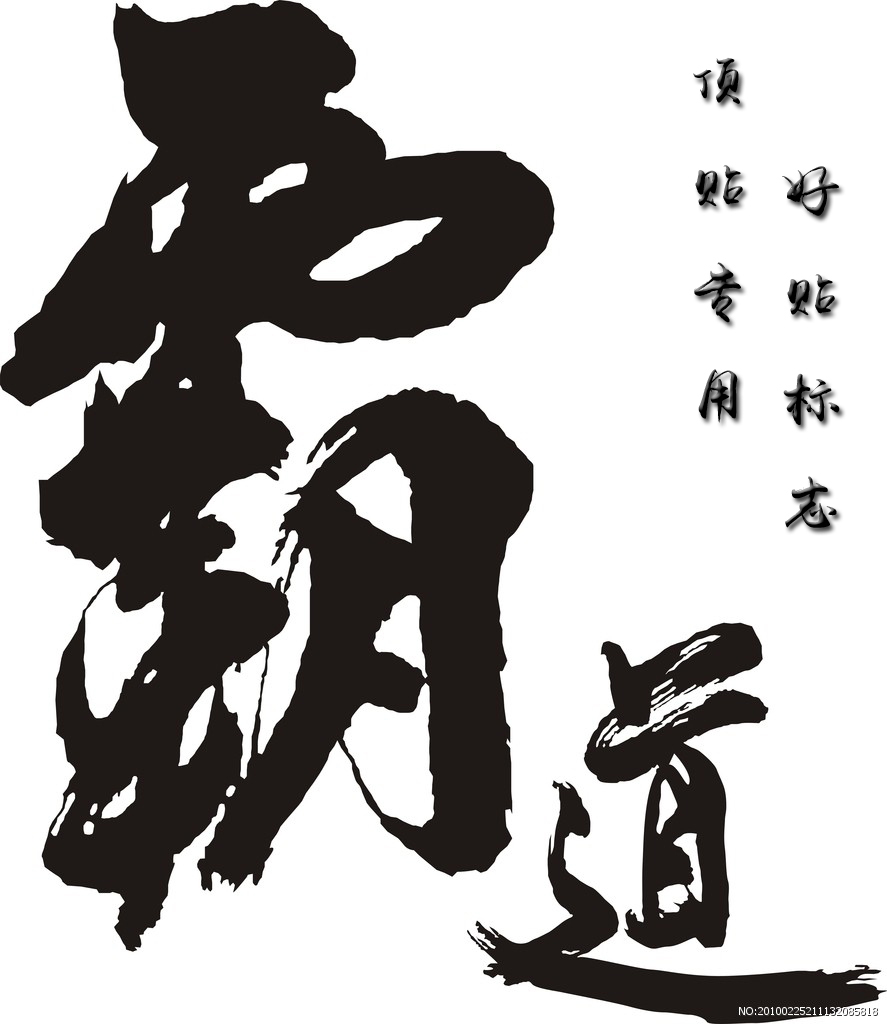 霸道
好贴标志
顶贴专用
NO:20100225211132085818